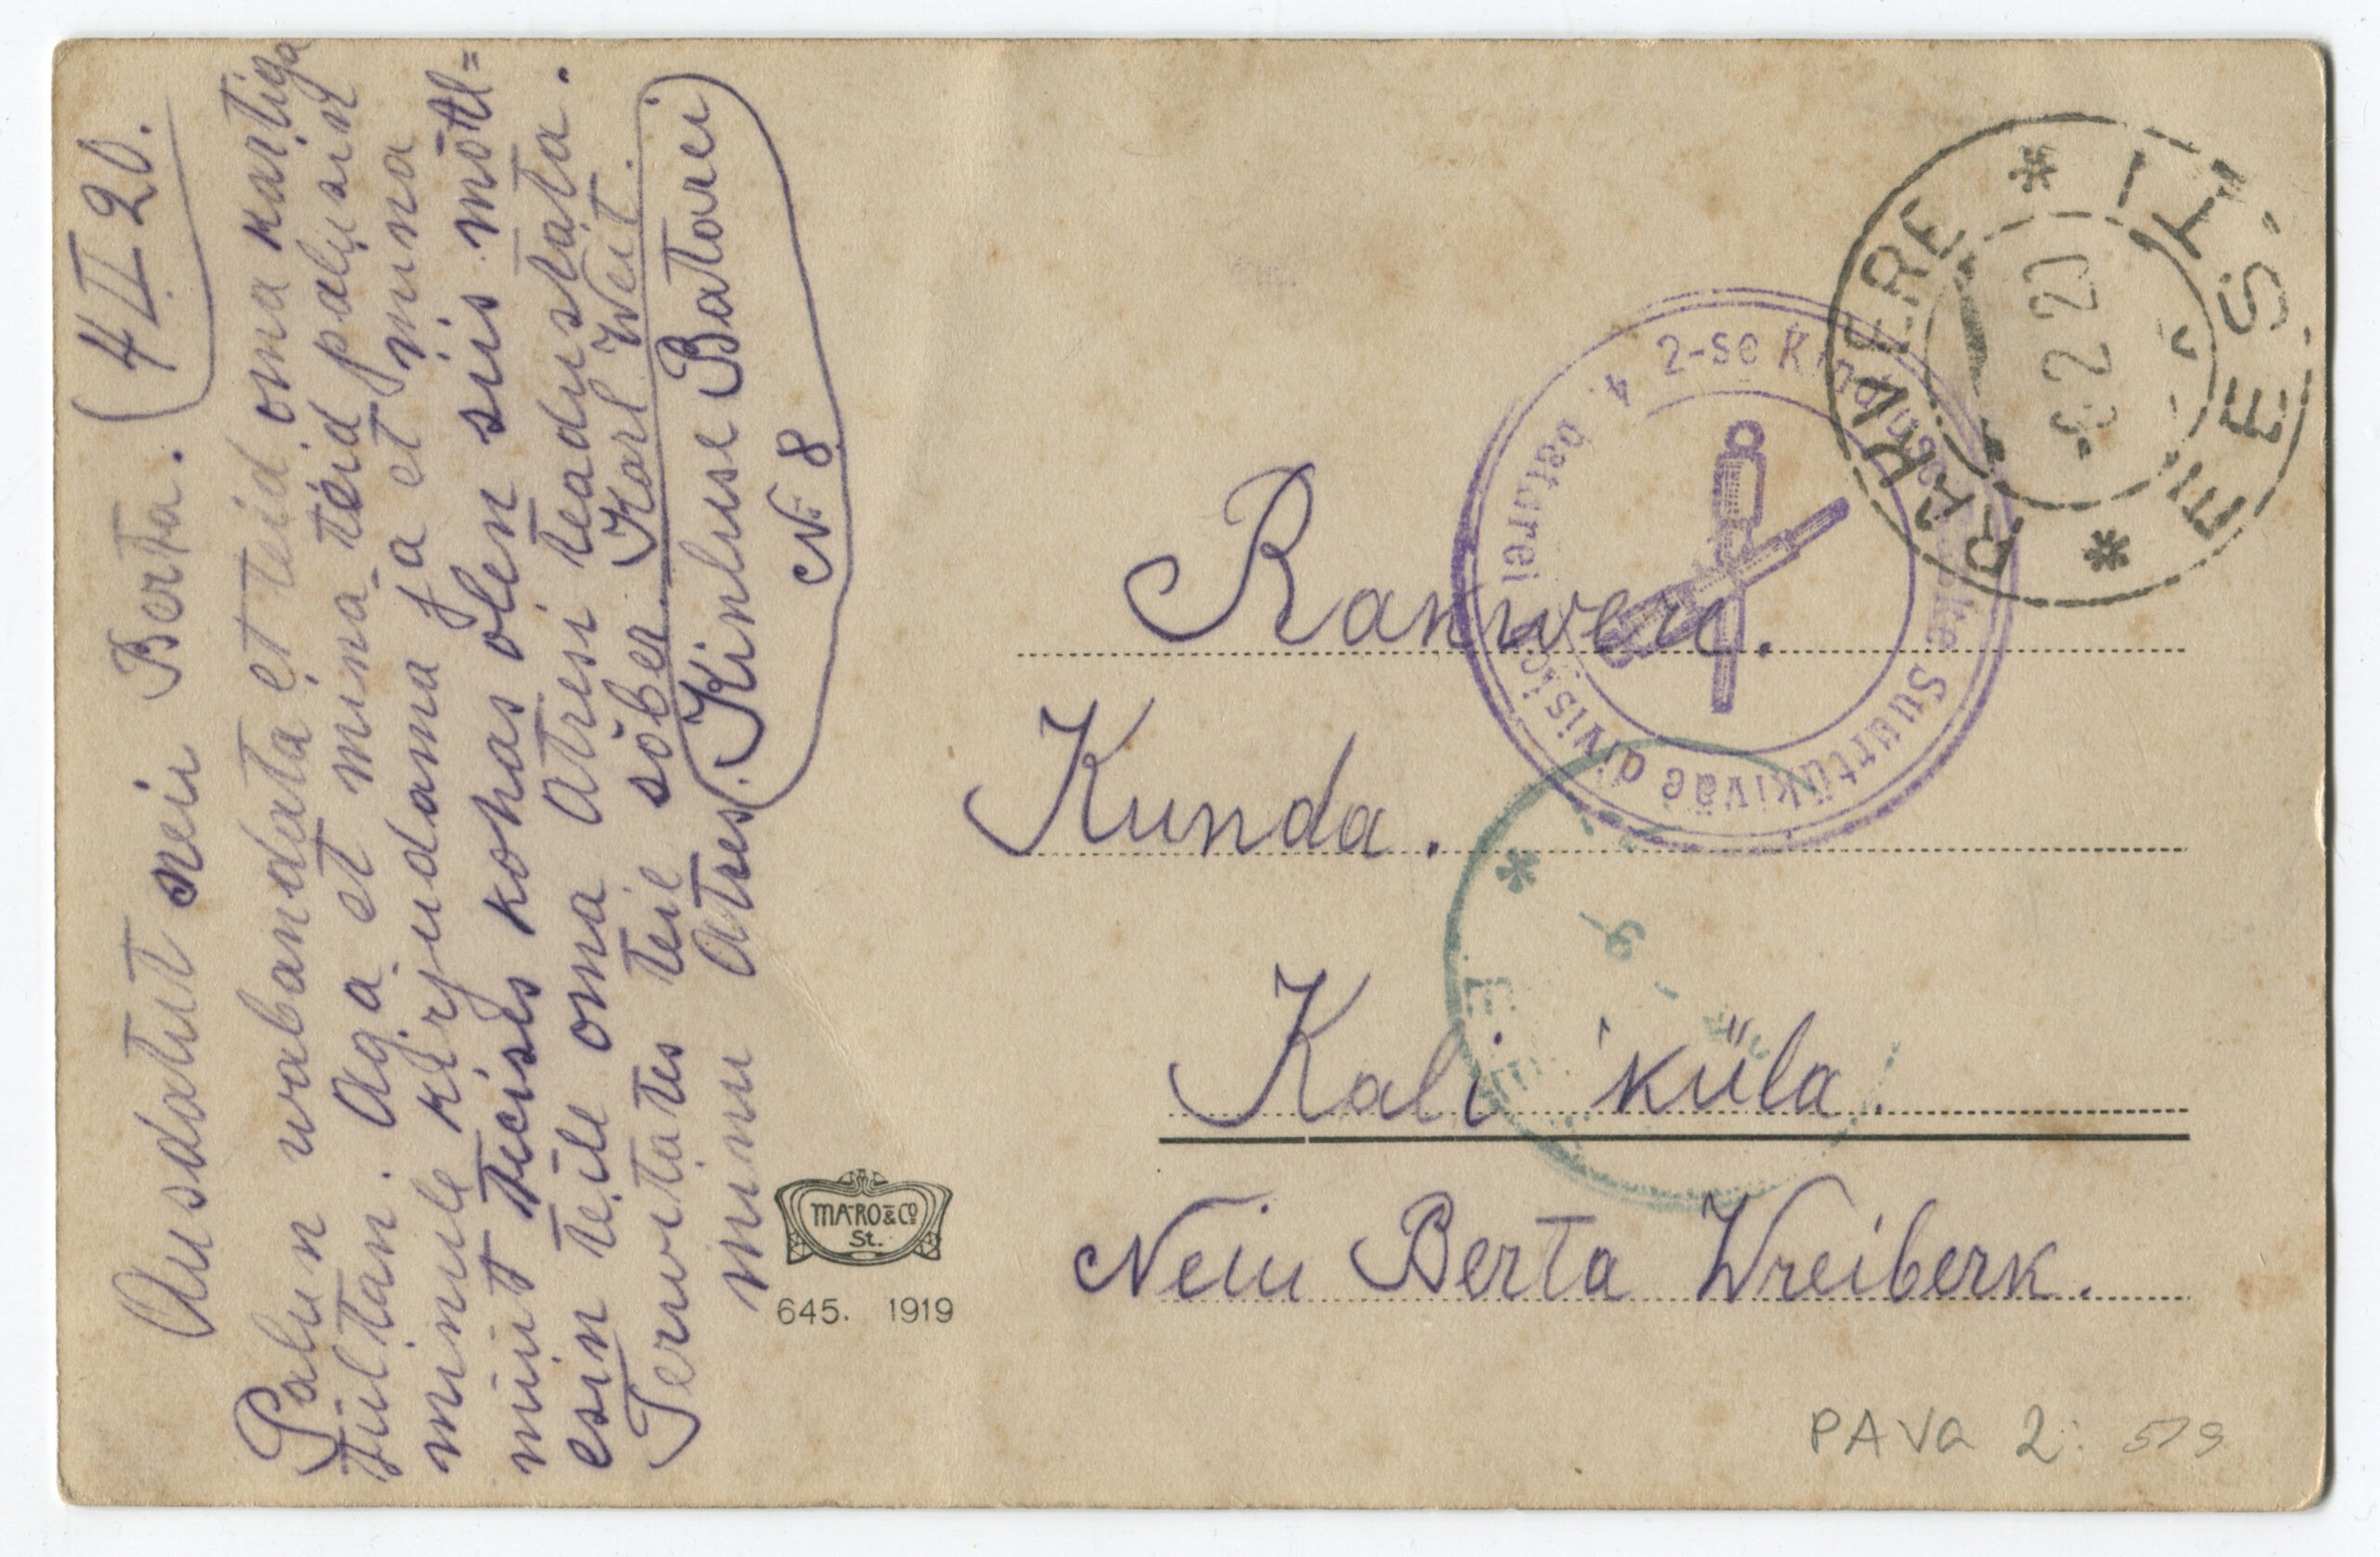 4 II 20.
Ausdatut neiu Berta.
Palun wabandata et teid oma kartiga
tültan. Aga et mina teid palusin
minule kirjudama ja et minna
muist kohas olen siis mõtl=
esin teile oma atresi teadustata.
Terwitates teile sõber Karl Weit.
minu atres. Kinluse Batarei
N. 8
MARO & Co
St.
645. 1919
Rakwere.
Kunda.
Kali küla.
Neiu Berta Wreiberk.
RAKVERE * EESTI *
2 20
4. 2-se Suurtükiväe divisioni patarei
* E E
9
PAVA 2: 579